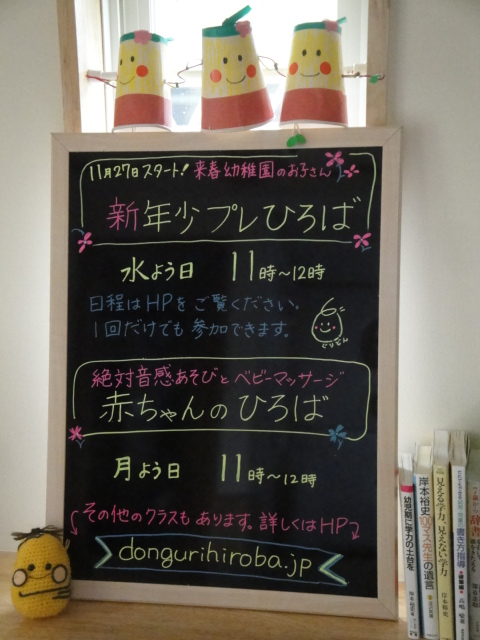 11月27日スタート! 来春幼稚園のお子さん
新年少プレひろば
水よう日 11時〜12時
日程はHPをご覧ください。
1回だけでも参加できます。
どりどん
絶対音感あそびとベビーマッサージ
赤ちゃんのひろば
月よう日 11時〜12時
その他のクラスもあります。詳しくはHP
dongurihiroba.jp
幼児期に学力の土台を
岸本裕史
100マス先生の遺言
見える学力、見えない学力
岸本裕史
書き方指導